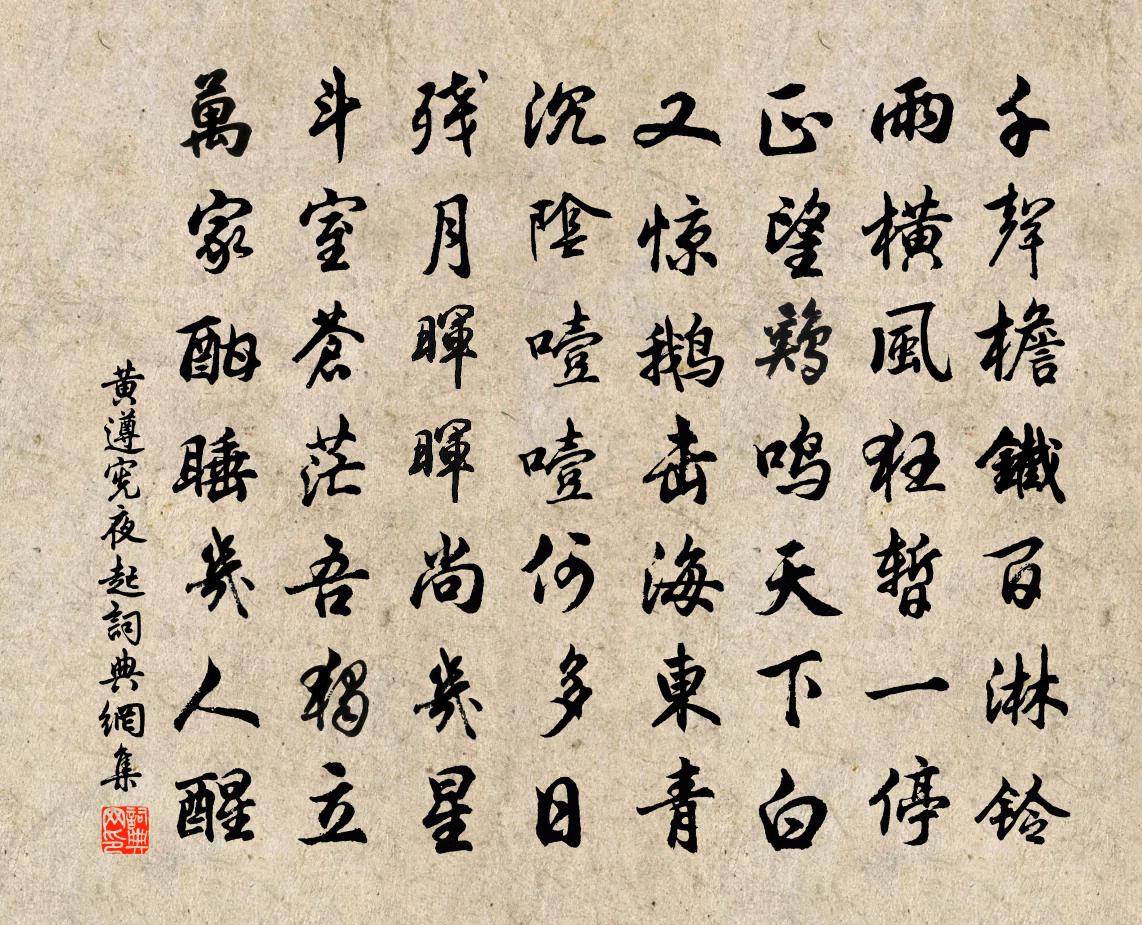 千聲檐鐵百淋鈴
雨橫風狂暫一停
正望鷄鸣天下白
又惊鹅击海東青
沉陰噎噎何多日
残月暉暉尚幾星
斗室蒼茫吾獨立
萬家酣睡幾人醒
黄遵宪夜起詞典網集
詞典网印